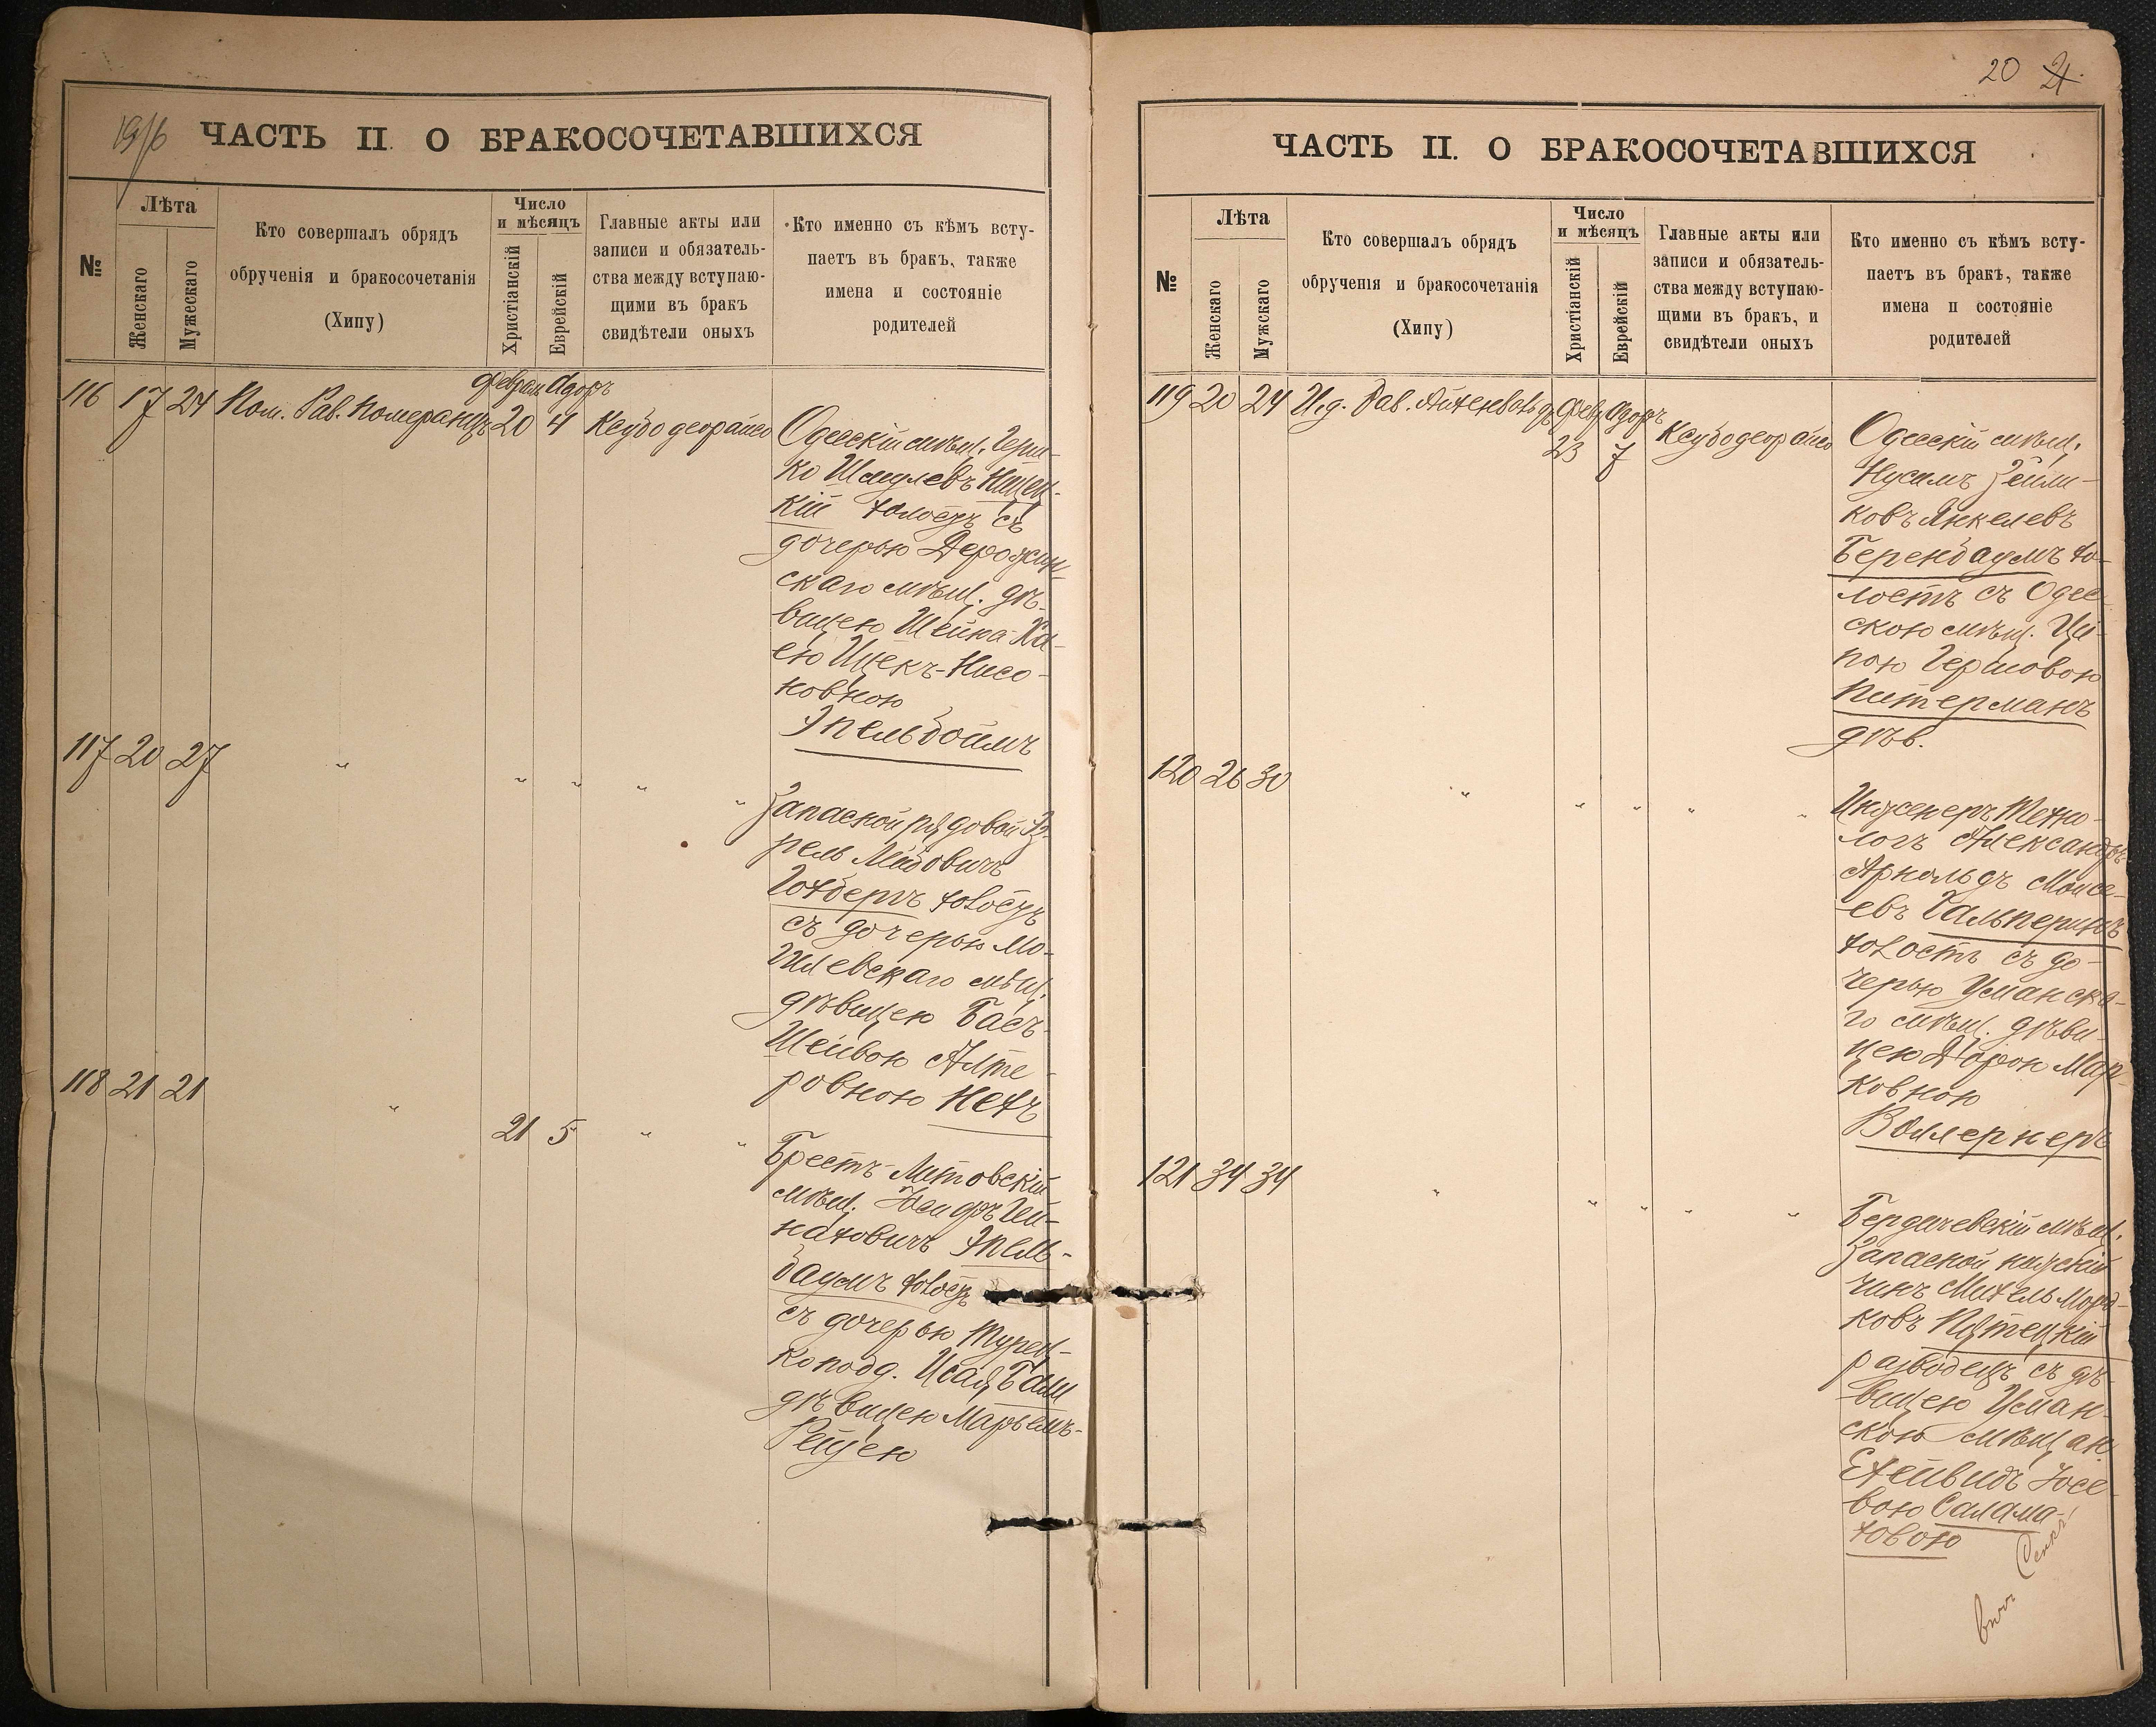 19/6
ЧАСТЬ II. О БРАКОСОЧЕТАВШИХСЯ
№
Лѣта
Женскаго
Мужескаго
Кто совершалъ обрядъ
обрученія и бракосочетанія
(Хипу)
Число
и мѣсяцъ
Христіанскій
Еврейскій
Главные акты или
записи и обязатель-
ства между вступаю-
щими въ бракъ
свидѣтели оныхъ
Кто именно съ кѣмъ всту-
паетъ въ бракъ, также
имена и состояніе
родителей
Февраль Адоръ
116 17 24 Пом. Рав. Померанцъ 20 4
Одесскій мѣщ. Герш-
ко Шмулевъ
кій холостъ съ
дочерью
скаго мѣщ. дѣ-
вицею Шейна-Ха-
ею Ицекъ-Нисо-
новною
Эпельбоймъ
117 20 27 " " " " "
Запасной рядовой Із-
рель Лейбовичъ
Готбергъ холостъ
съ дочерью Мо-
гилевскаго мѣщ.
дѣвицею Бась-
Шейвою Алте-
ровною Нехъ
118 21 21 " 21 5 " "
Брестъ-Литовскій
мѣщ.
Эпель-
баумъ холостъ
съ дочерью Турец-
ко подд. Исая Баш
дѣвицею Марьемъ-
Рейзею
20 21.
ЧАСТЬ II. О БРАКОСОЧЕТАВШИХСЯ
№
Лѣта
Женскаго
Мужскаго
Кто совершалъ обрядъ
обрученія и бракосочетанія
(Хипу)
Число
и мѣсяцъ
Христіанскій
Еврейскій
Главные акты или
записи и обязатель-
ства между вступаю-
щими въ бракъ, и
свидѣтели оныхъ
Кто именно съ кѣмъ всту-
паетъ въ бракъ, также
имена и состояніе
родителей
119 20 24 И.д. Рав. Февр Адоръ
23 7
Одесскій мѣщ.
Нусимъ Зейли-
ковъ Янкелевъ
Беренбаумъ хо-
лостъ съ Одес-
скою мѣщ. Ци-
пою Гершовою
Питерманъ
дѣв.
120 26 30 " " " " "
Инженеръ Техно-
логъ Александръ
Арнольдъ Моисе-
евъ Гальперинъ
холостъ съ до-
черью Уманска-
го мѣщ. дѣви-
цею Дорою Мар-
ковною
Воллернеръ
121 34 34 " " " " "
Бердичевскій мѣщ.
Запасной нижній
чинъ Михель Морд-
ковъ Пятецкій
разводецъ съ дѣ-
вицею Уман-
скою мѣщан
Іосе-
вою Салама-
ховою